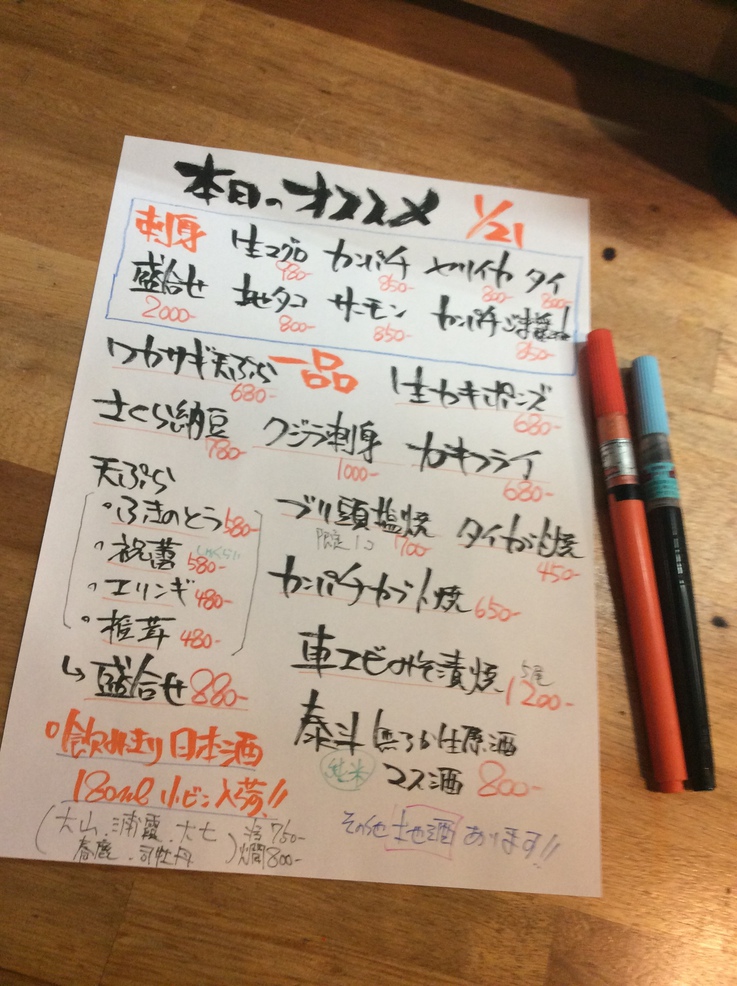 本日のオススメ 1/21
刺身 生マグロ 980- カンパチ 850- ヤリイカ 800- タイ 800-
盛合せ 2000- 地タコ 800- サーモン 850- カンパチごま醤油 850-
一品
ワカサギ天ぷら 680- 生カキポン酢 680-
さくら納豆 780- クジラ刺身 1000- カキフライ 680-
天ぷら
・ふきのとう 580-
・祝蕾 580-
・エリンギ 480-
・椎茸 480-
↳ 盛合せ 880-
ブリ頭塩焼 限定1コ 700- タイカブト焼 450-
カンパチカブト焼 650-
車エビのみそ漬焼 5尾 1200-
泰斗 無ろか生原酒
純米 コップ酒 800-
○飲みきり日本酒
180ml 小ビン入荷!!
(大山.浦霞.大七 冷 750-
春鹿.司牡丹) 燗 800-
その他 地酒 あります!!